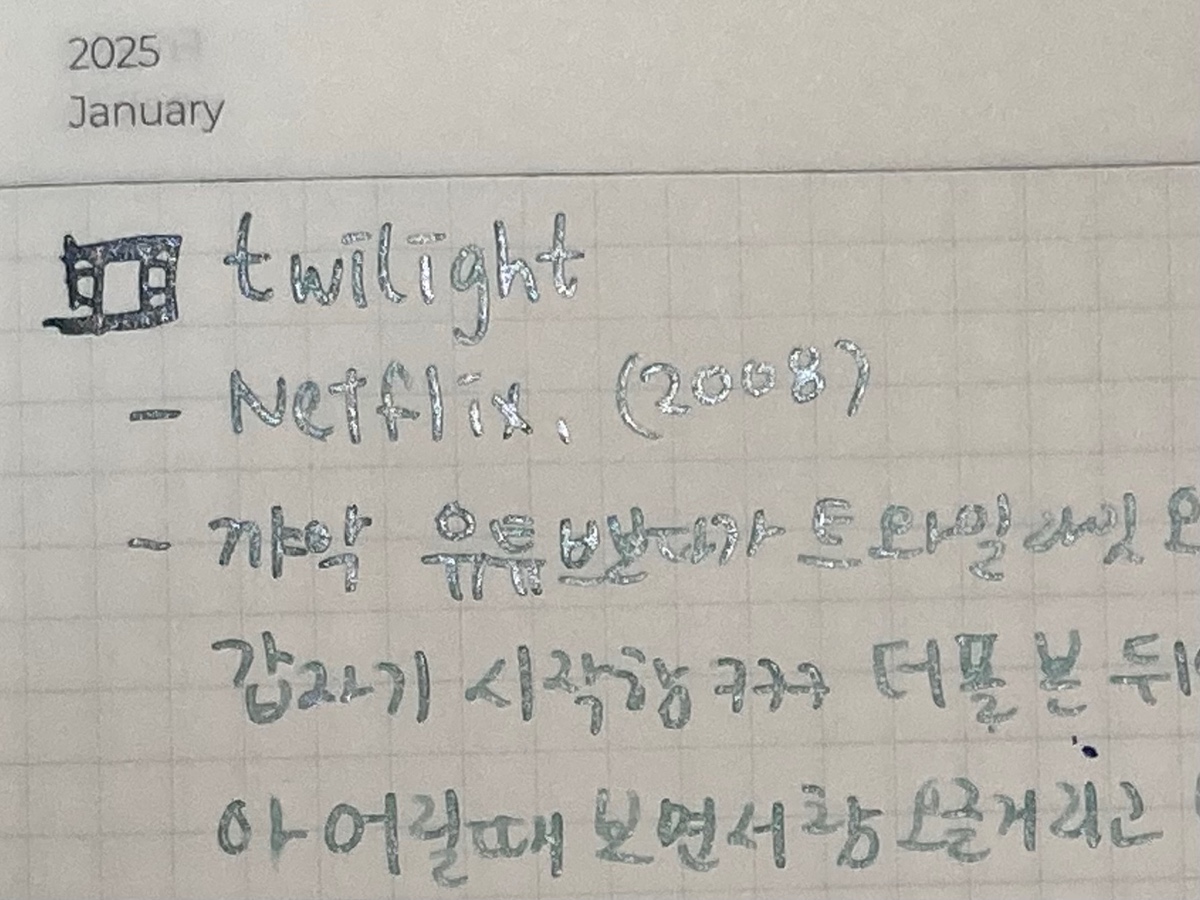 2025
January
twilight
- Netflix. (2008)
- 꺄악 유튜브보다가 트와일라잇
갑자기 시작함 ㅋㅋㅋ 더폴 본 뒤
아 어릴때 보면서 참 오글거리고